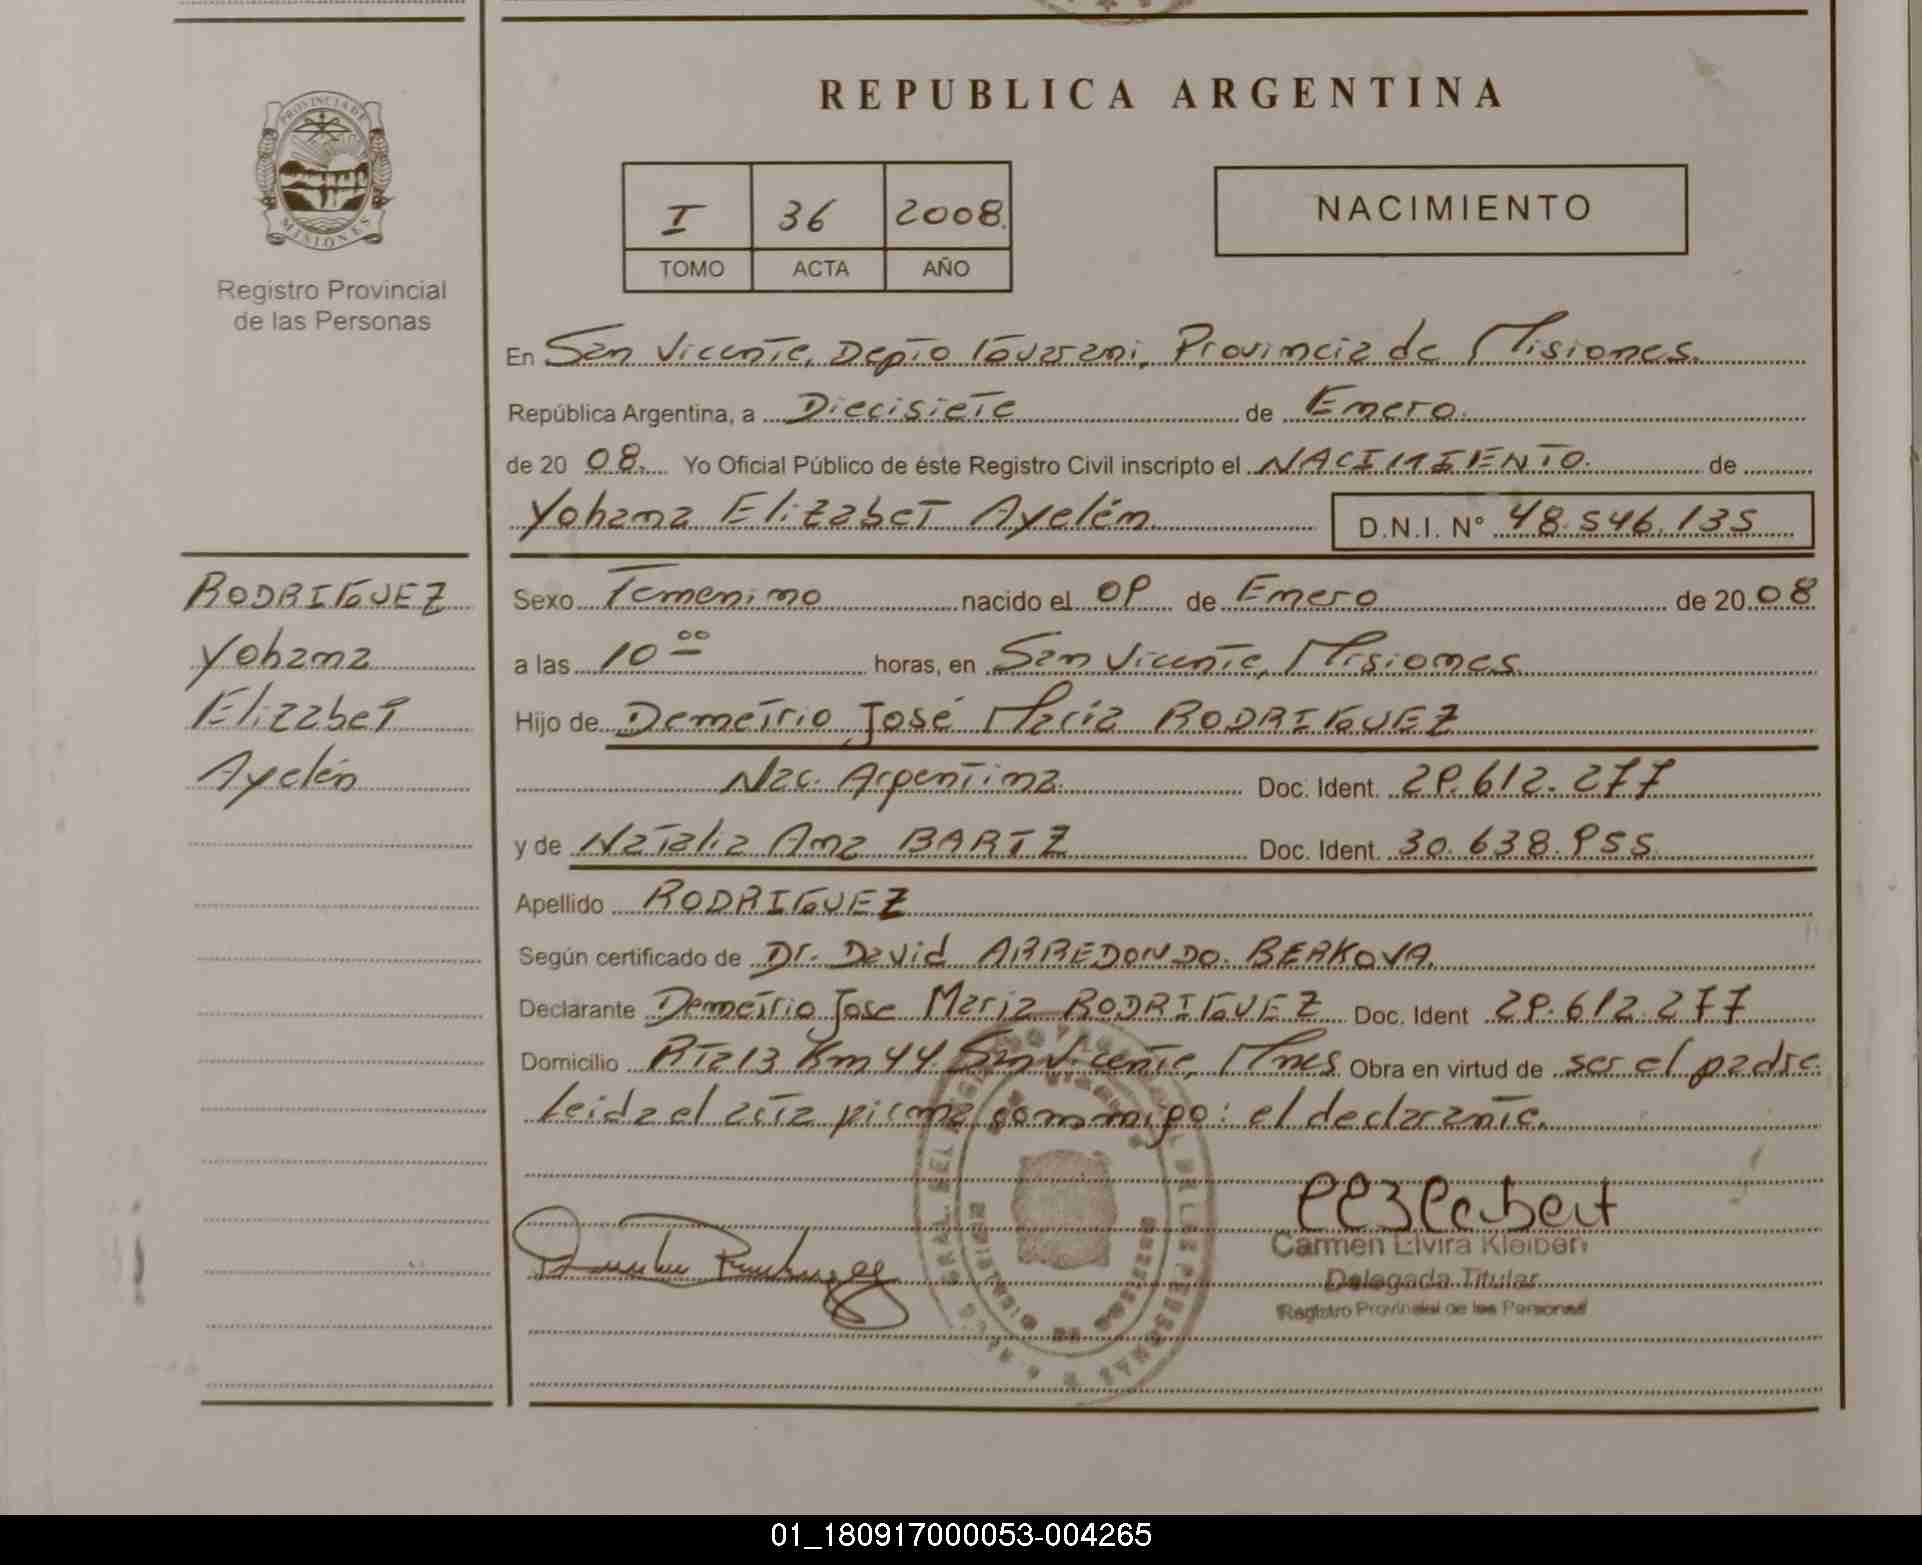 REPUBLICA ARGENTINA
PROVINCIA DE
MISIONES
Registro Provincial
de las Personas
I 36 2008.
TOMO ACTA AÑO
NACIMIENTO
En San Vicente, Depto Guarani, Provincia de Misiones.
República Argentina, a Diecisiete de Enero.
de 20 08. Yo Oficial Público de éste Registro Civil inscripto el NACIMIENTO. de
Yohana Elizabet Ayelén D.N.I. N° 48.546.135
RODRIGUEZ
Yohana
Elizabet
Ayelén
Sexo Femenino nacido el 09 de Enero de 20 08
a las 10 00 horas, en San Vicente, Misiones.
Hijo de Demetrio José María RODRIGUEZ
Nac. Argentina. Doc. Ident. 29.612.277
y de Natalia Ana BARTZ Doc. Ident. 30.638.955
Apellido RODRIGUEZ
Según certificado de Dr. David ARREDONDO. BERKOVA.
Declarante Demetrio Jose Maria RODRIGUEZ Doc. Ident 29.612.277
Domicilio Rta 13 Km 44 San Vicente, Mnes. Obra en virtud de ser el padre.
Leida el acta firma conmigo: el declarante.
Carmen Elvira Kleibert
Delegada Titular
Registro Provincial de las Personas
01_180917000053-004265